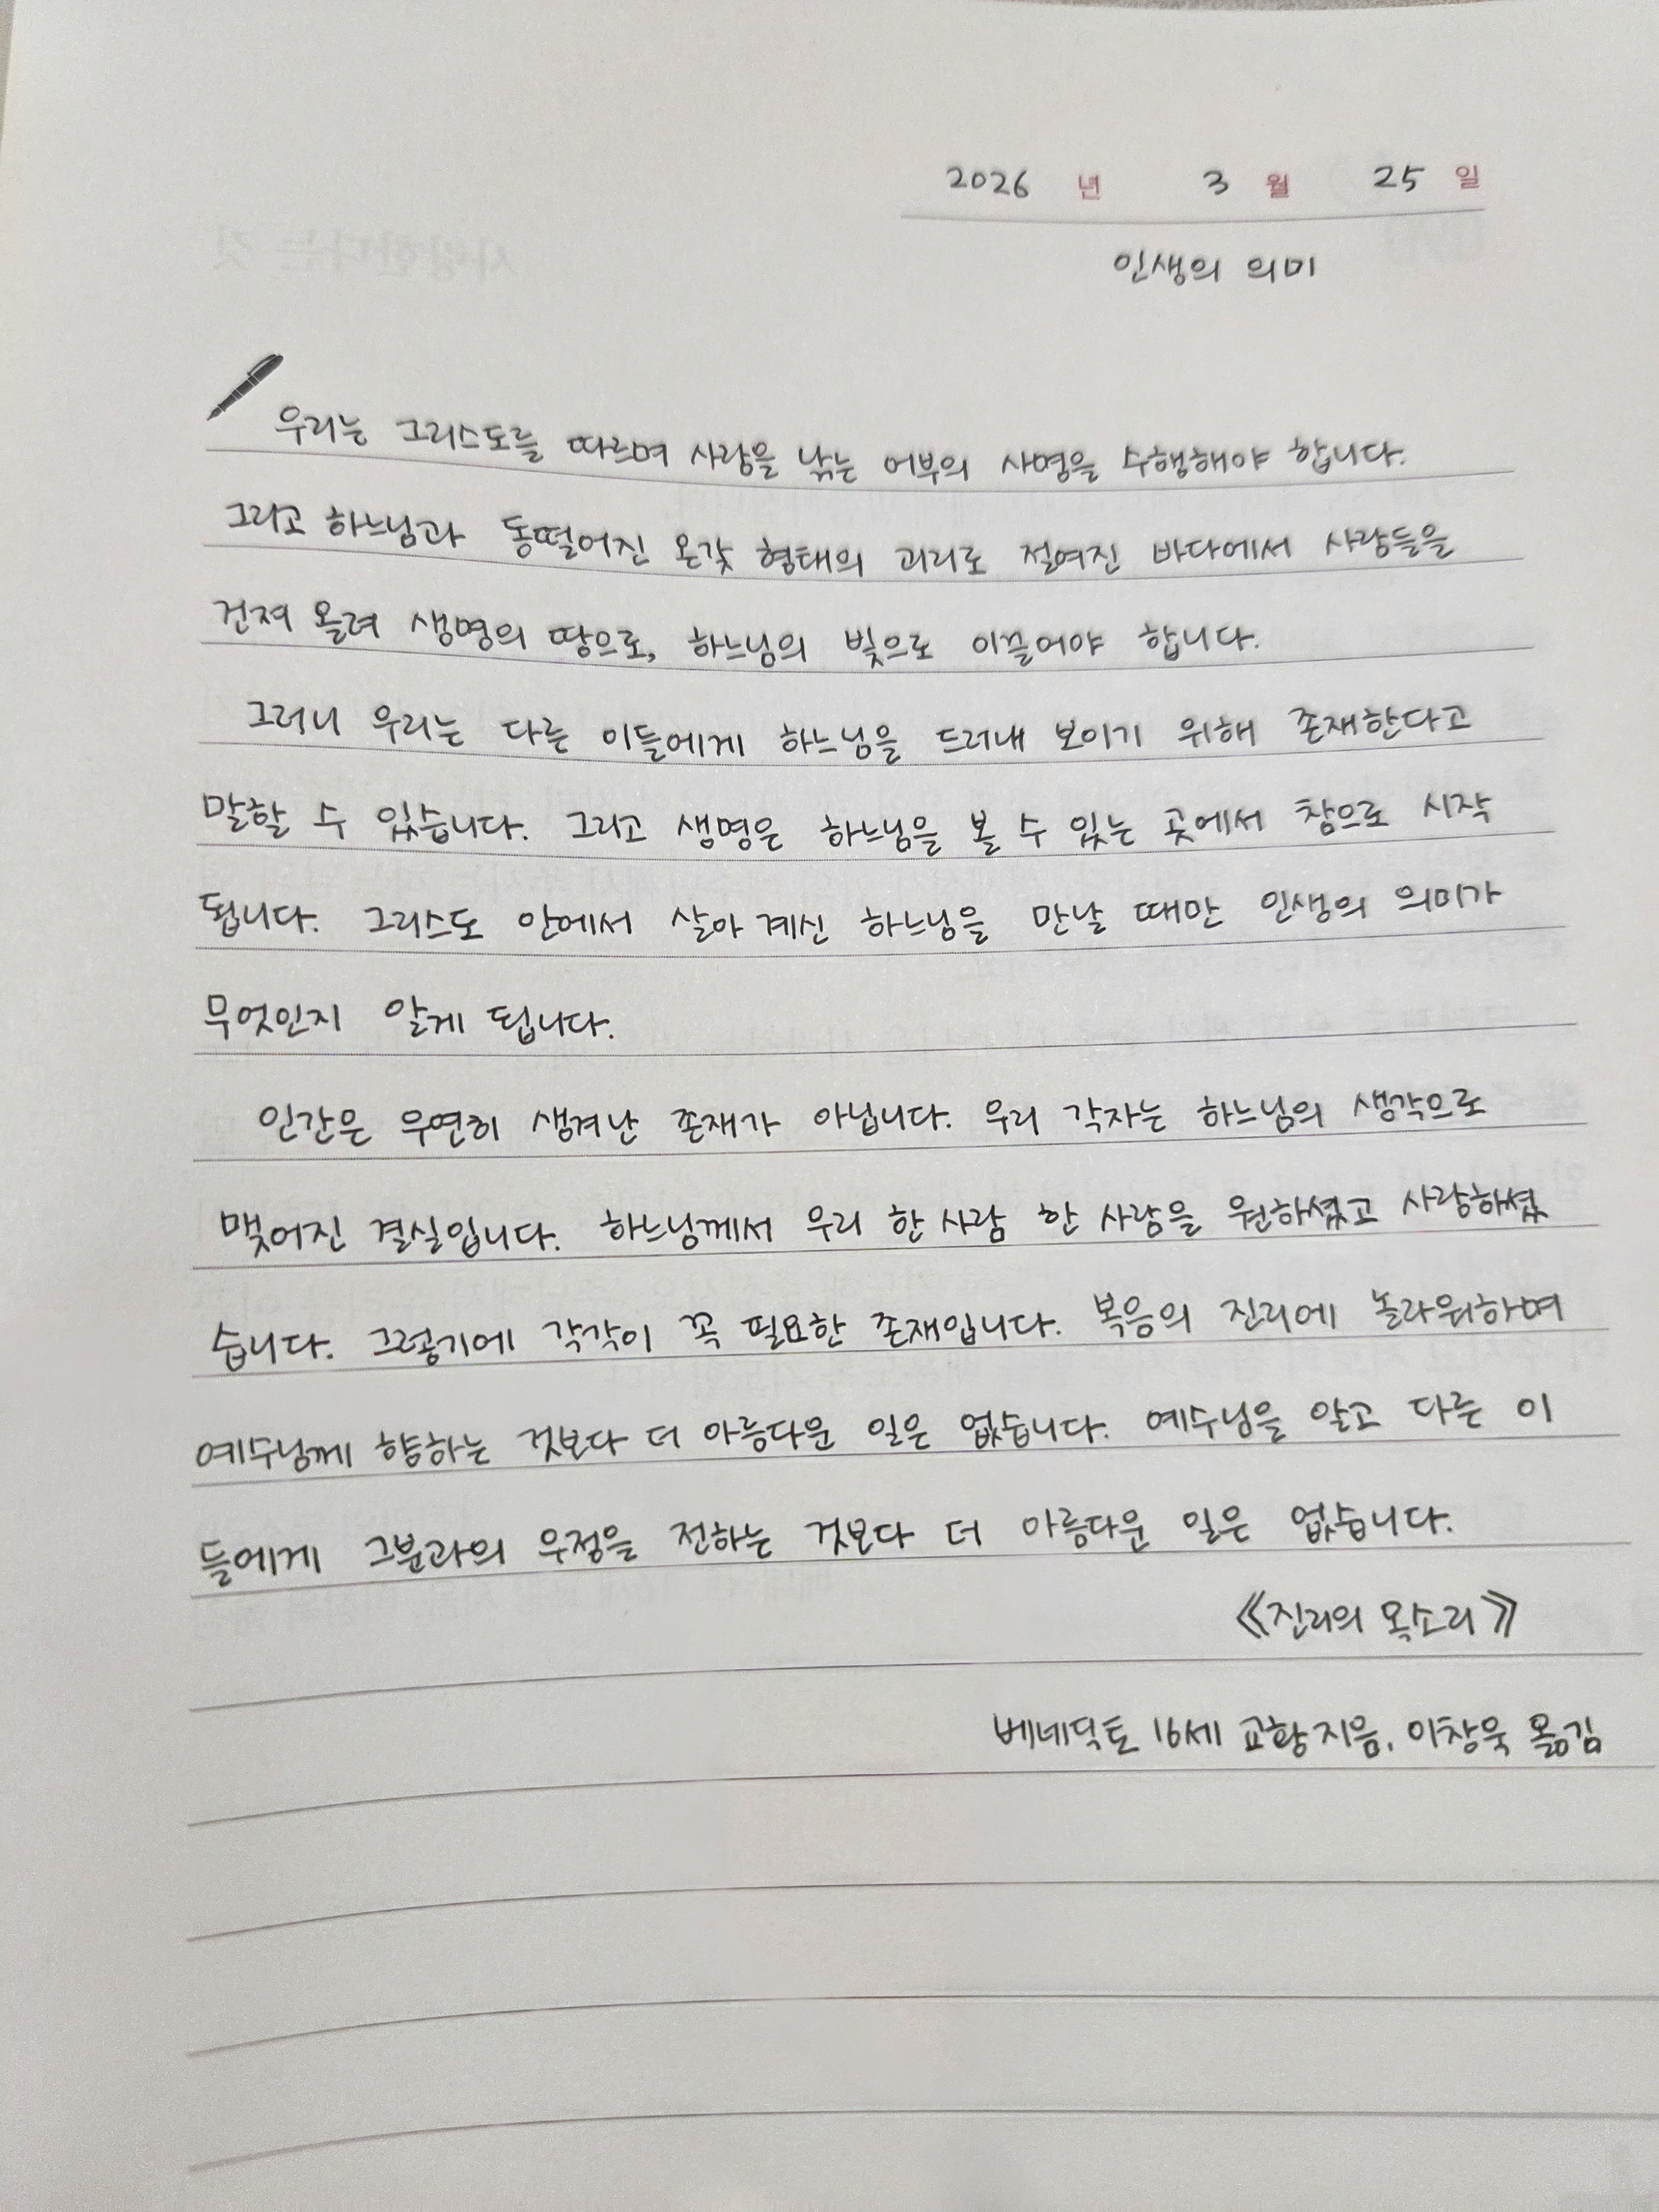 2026 년 3 월 25 일
인생의 의미
우리는 그리스도를 따르며 사람을 낚는 어부의 사명을 수행해야 합니다.
그리고 하느님과 동떨어진 온갖 형태의 괴리로 절여진 바다에서 사람들을
건져 올려 생명의 땅으로, 하느님의 빛으로 이끌어야 합니다.
그러니 우리는 다른 이들에게 하느님을 드러내 보이기 위해 존재한다고
말할 수 있습니다. 그리고 생명은 하느님을 볼 수 있는 곳에서 참으로 시작
됩니다. 그리스도 안에서 살아 계신 하느님을 만날 때만 인생의 의미가
무엇인지 알게 됩니다.
인간은 우연히 생겨난 존재가 아닙니다. 우리 각자는 하느님의 생각으로
맺어진 결실입니다. 하느님께서 우리 한 사람 한 사람을 원하셨고 사랑하셨
습니다. 그렇기에 각각이 꼭 필요한 존재입니다. 복음의 진리에 놀라워하며
예수님께 향하는 것보다 더 아름다운 일은 없습니다. 예수님을 알고 다른 이
들에게 그분과의 우정을 전하는 것보다 더 아름다운 일은 없습니다.
《진리의 목소리》
베네딕토 16세 교황 지음, 이창욱 옮김